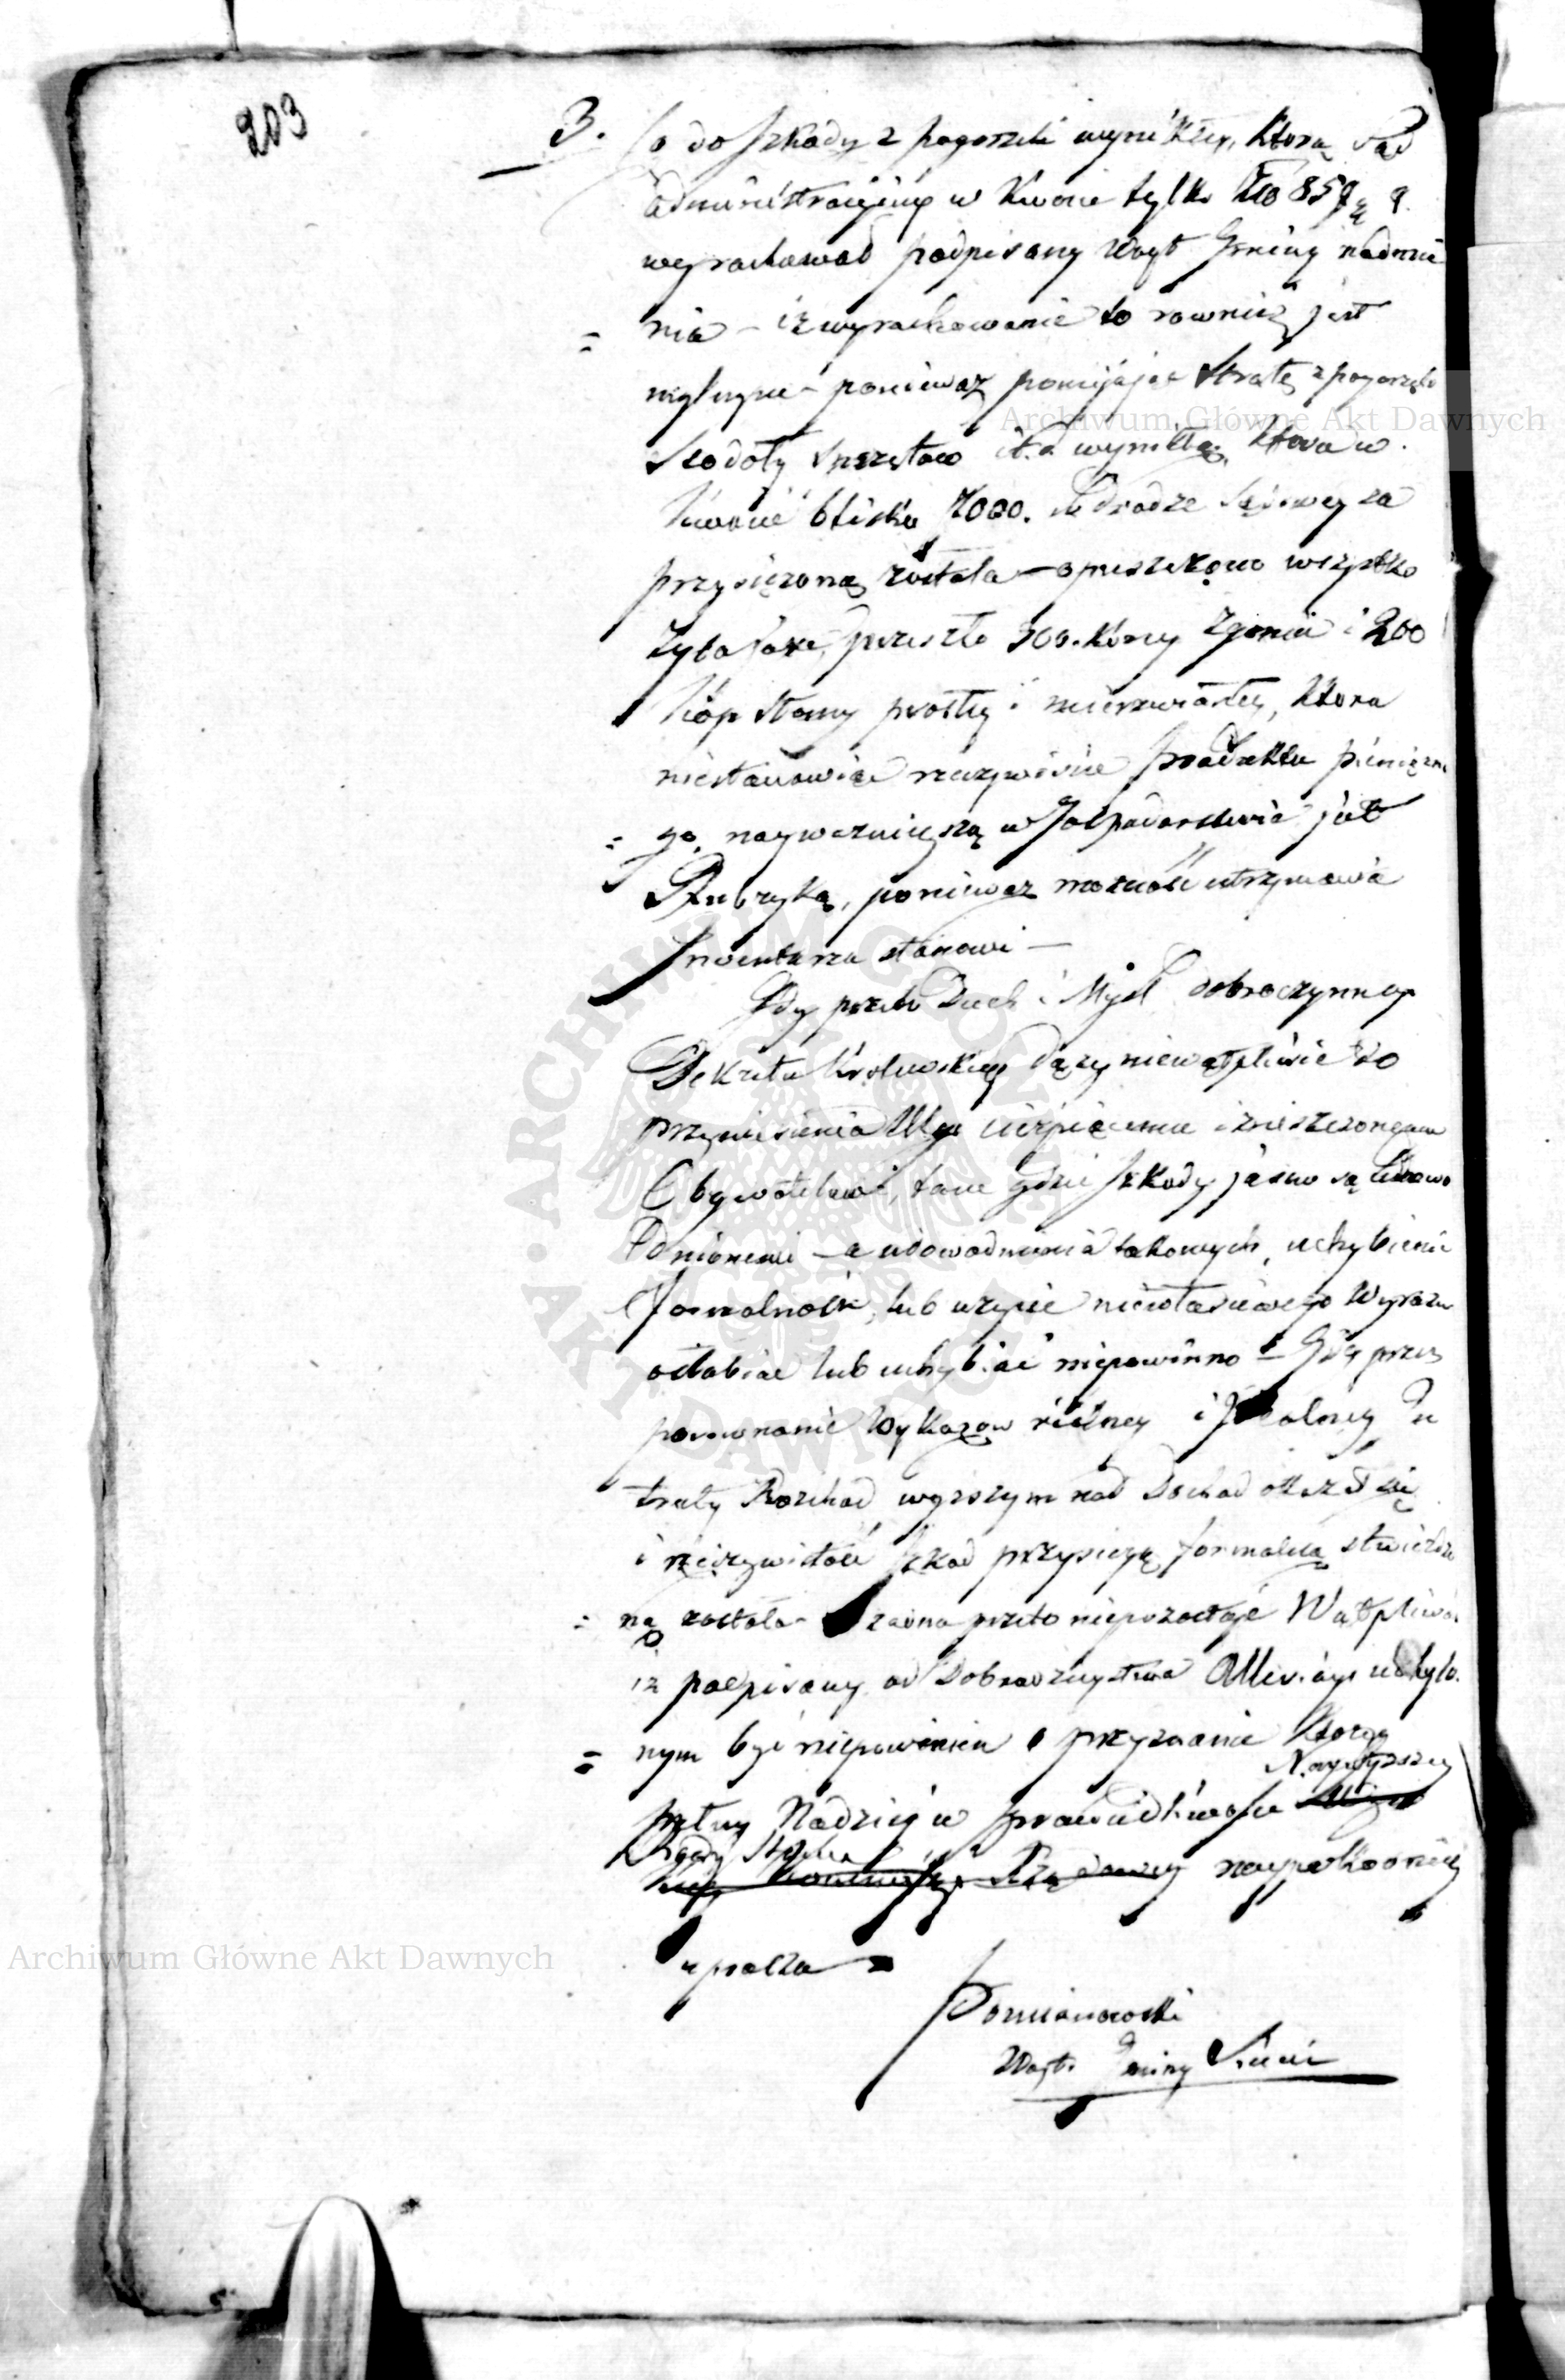 203
3. Co do Szkody z pogorzeli wynikłey, ktorą Sąd
Administracyiny w kwocie tylko
wyrachował podpisany Woyt Gminy nadmie
= nia – iż wyrachowanie to rownież jest
mylne – ponieważ pomijając Stratę z pogorzeli
Stodoły Sprzętow it.d wynikłą, ktora w
kwocie blisko 7000. w drodze Sądowey za
przysiężoną została – opuszczono wszystko
przeszło 300. i 200
kóp słomy prostey i mierzwiastey, ktora
niestanowiąc rzeczywiście produktu pieniężne
= go, nayważnieyszą w Gospodarstwie jest
Rubryką, ponieważ możność utrzymania
Inwentarza stanowi –
Gdy przeto Duch i Myśl dobroczynney
Dekretu Krolewskiego dąży niewątpliwie do
przyniesienia Ulgi cierpiącemu i zniszczonemu
Obywatelowi, tam gdzie Szkody jasno są udowo
dnionemi – a udowodnienia takowych, uchybienie
Formalności, lub użycie niewłaściwego Wyrazu
osłabiać lub uchybiać niepowinno – Gdy przez
porownanie Wykazow rocznej i In
traty Rozchod wyższym nad Dochod okazał się
i rzeczywistość Szkod przysięgą formalną stwierdzo
= ną została – żadna przeto niepozostaje Wątpliwość
iż podpisany od Dobrodzieystwa uchylo
= nym być niepowinien o przyznanie ktorego
Naywyższey
pełny Nadziei w sprawiedliwości
Rady Stanu
Rządowey naypokorniey
uprasza –
Pomianowski
Woyt Gminy
Archiwum Główne Akt Dawnych
Archiwum Główne Akt Dawnych
ARCHIWUM GŁÓWNE AKT DAWNYCH